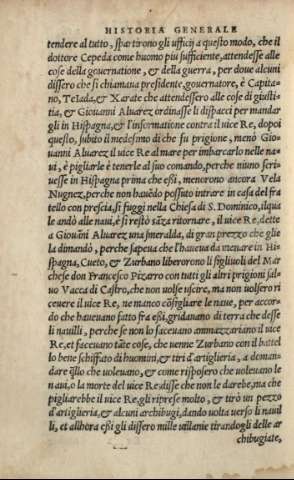 HISTORIA GENERALE
tendere al tutto, spartirono gli ufficij a questo modo, che il
dottore Cepeda come huomo piu sufficiente, attendesse alle
cose della governatione, & della guerra, per doue alcuni
dissero che si chiamana presidente, governatore, è Capita-
no, Telada, & Xarate che attendessero alle cose di giusti-
tia, & Giouanni Aluarez ordinasse li dispacci per mandar
gli in Hispagna, & l'informatione contra il uice Re, dopoi
questo, subito il medesimo dì che fu prigione, menò Gio-
uanni Aluarez il uice Re al mare per imbarcarlo nelle na-
ui, è pigliarle è tenerle al suo comando, perche niuno scri-
uesse in Hispagna prima che essi, menorono ancora Vela
Nugnez, perche non hauēdo possuto intrare in casa del fra
tello con prescia, si fuggì nella Chiesa di S. Dominico, ilqua
le andò alle naui, è si restò sāza ritornare, il uice Re, dette
a Giouāni Aluarez una smeralda, di gran prezzo che glie
la dimandò, perche sapeua che l'haueua da menare in Hi-
spagna, Cueto, & Zurbano liberorono li figliuoli del Mar
chese don Francesco Pizarro con tutti gli altri prigioni sal-
uo Vacca di Castro, che non uolse uscire, ma non uolsero ri
ceuere il uice Re, ne manco cōsigliare le naue, per accor-
do che haueuano fatto fra essi, gridanano di terra che desse
li nauilli, perche se non lo faceuano ammazzariano il uice
Re, et faceuano tāte cose, che uenne Zurbano con il battel
lo bene schiffato di huomini, & tiri d'artiglieria, a doman-
dare q̄llo che uoleuano, & come risposero che uoleuano le
naui, o la morte del uice Re disse che non le darebe, ma che
pigliarebbe il uice Re, gli riprese molto, & tirò un pezzo
d'artiglieria, & alcuni archibugi, dando uolta uerso li nauil
li, et allhora essi gli dissero mille uillanie tirandogli delle ar
chibugiate,